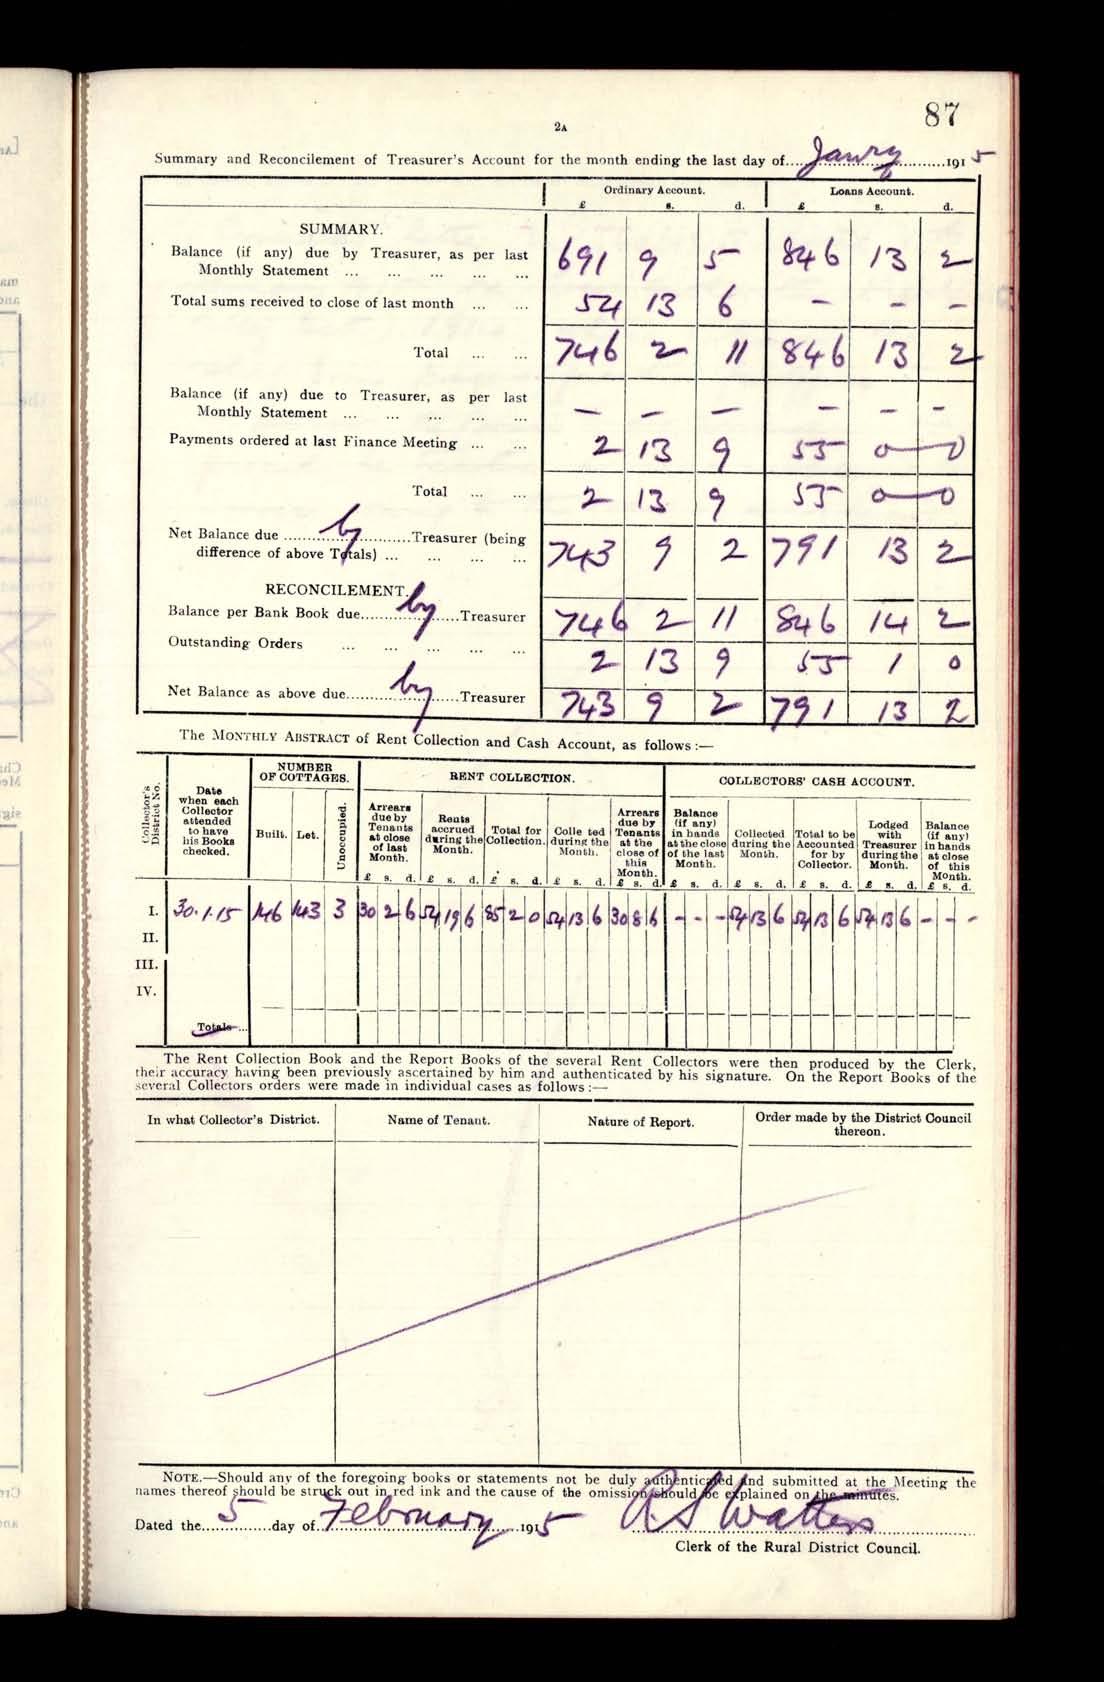 87
2A
Summary and Reconcilement of Treasurer's Account for the month ending the last day of....Janry..........1915
Ordinary Account. Loans Account.
£ s. d. £ s. d.
SUMMARY.
Balance (if any) due by Treasurer, as per last
Monthly Statement ... ... ... ... ... 691 9 5 846 13 2
Total sums received to close of last month ... ... 54 13 6 – – –
Total ... ... 746 2 11 846 13 2
Balance (if any) due to Treasurer, as per last
Monthly Statement ... ... ... ... ... — — — — — —
Payments ordered at last Finance Meeting ... ... 2 13 9 55 0 0
Total ... ... 2 13 9 55 0 0
Net Balance due ......by......Treasurer (being
difference of above Totals) ... ... ... ... 743 9 2 791 13 2
RECONCILEMENT.
Balance per Bank Book due......by......Treasurer 746 2 11 846 14 2
Outstanding Orders ... ... ... ... ... 2 13 9 55 1 0
Net Balance as above due......by......Treasurer 743 9 2 791 13 2
The MONTHLY ABSTRACT of Rent Collection and Cash Account, as follows :—
Collector's District No.
Date when each Collector attended to have his Books checked.
NUMBER OF COTTAGES.
Built. Let. Unoccupied.
RENT COLLECTION.
Arrears due by Tenants at close of last Month.
Rents accrued during the Month.
Total for Collection.
Colle ted during the Month.
Arrears due by Tenants at the close of this Month.
COLLECTORS' CASH ACCOUNT.
Balance (if any) in hands at the close of the last Month.
Collected during the Month.
Total to be Accounted for by Collector.
Lodged with Treasurer during the Month.
Balance (if any) in hands at close of this Month.
£ s. d. £ s. d. £ s. d. £ s. d. £ s. d. £ s. d. £ s. d. £ s. d. £ s. d. £ s. d.
I. 30.1.15 146 143 3 30 2 6 54 19 6 85 2 0 54 13 6 30 8 6 - - - 54 13 6 54 13 6 54 13 6 - - -
II.
III.
IV.
Totals...
The Rent Collection Book and the Report Books of the several Rent Collectors were then produced by the Clerk,
their accuracy having been previously ascertained by him and authenticated by his signature. On the Report Books of the
several Collectors orders were made in individual cases as follows :—
In what Collector's District. Name of Tenant. Nature of Report. Order made by the District Council
thereon.
NOTE.—Should any of the foregoing books or statements not be duly authenticated and submitted at the Meeting the
names thereof should be struck out in red ink and the cause of the omission should be explained on the minutes.
Dated the......5......day of......February......1915 R S Watters
Clerk of the Rural District Council.